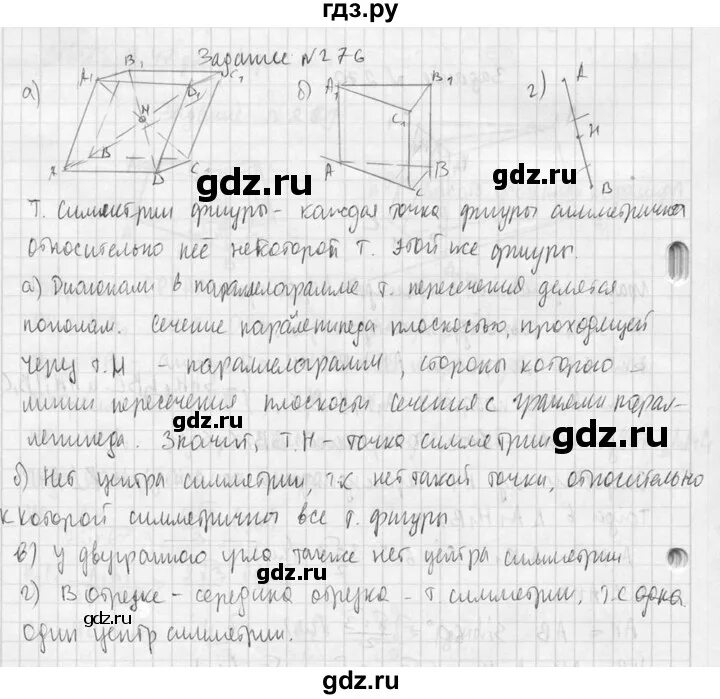 гдз.ру
Задание №276
а)
A₁ B₁ C₁ D₁ H A B C D
б)
A₁ B₁ C₁ A B C
г)
A H B
gdz.ru gdz.ru
Т. симметрии фигуры - каждая точка фигуры симметрична
относительно неё некоторой т. этой же фигуры.
а) Диагонали в параллелограмме т. пересечения делятся
пополам. Сечение паралепипеда плоскостью, проходящей
через т. H - параллелограмм, стороны которого -
линии пересечения плоскости сечения с гранями парал-
лепипеда. Значит, т. H - точка симметрии
б) Нет центра симметрии, т.к нет такой точки, относительно
которой симметричны все т. фигуры
в) У двугранного угла также нет центра симметрии
г) В отрезке - середина отрезка - т. симметрии, т.к
один центр симметрии.
gdz.ru gdz.ru
gdz.ru gdz.ru
gdz.ru gdz.ru